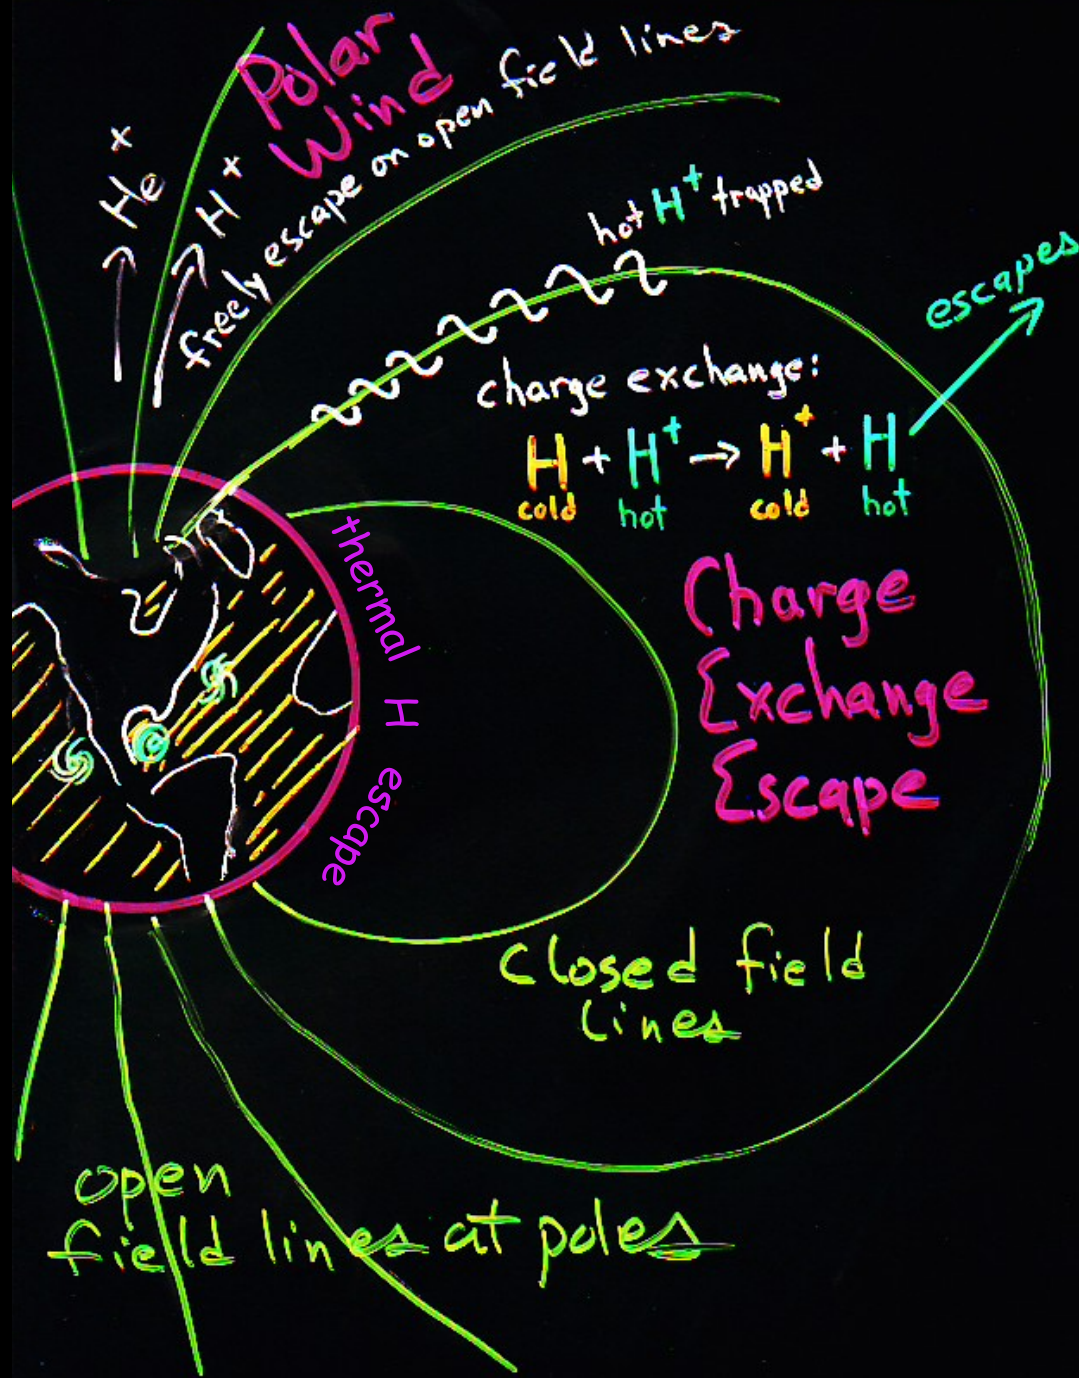 Polar
Wind
He+
H+
freely escape on open field lines
hot H+ trapped
escapes
charge exchange:
H + H+ → H+ + H
cold hot cold hot
thermal H escape
Charge
Exchange
Escape
closed field
lines
open
field lines at poles